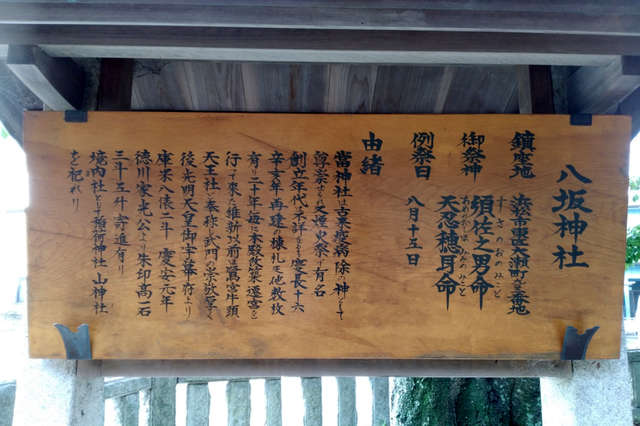 八坂神社
鎮座地 浜松市
御祭神 須佐之男命
すさのおのみこと
天忍穂耳命
あめのおしほみみのみこと
例祭日 八月十五日
由緒
當神社は古来疫病除の神として
尊崇され 火祭で有名
創立年代不詳なるも慶長十六
辛亥年再建の棟札其他数枚
有り二十年毎に本殿改築遷宮を
行って来た維新以前は最寛牛頭
天王社と奉称し武門の崇敬厚く
後光明天皇御宇幕府より
庫米八俵二斗 慶安元年
徳川家光公より朱印高一石
三斗五升寄進有り
境内社として稲荷神社 山神社
を祀れり